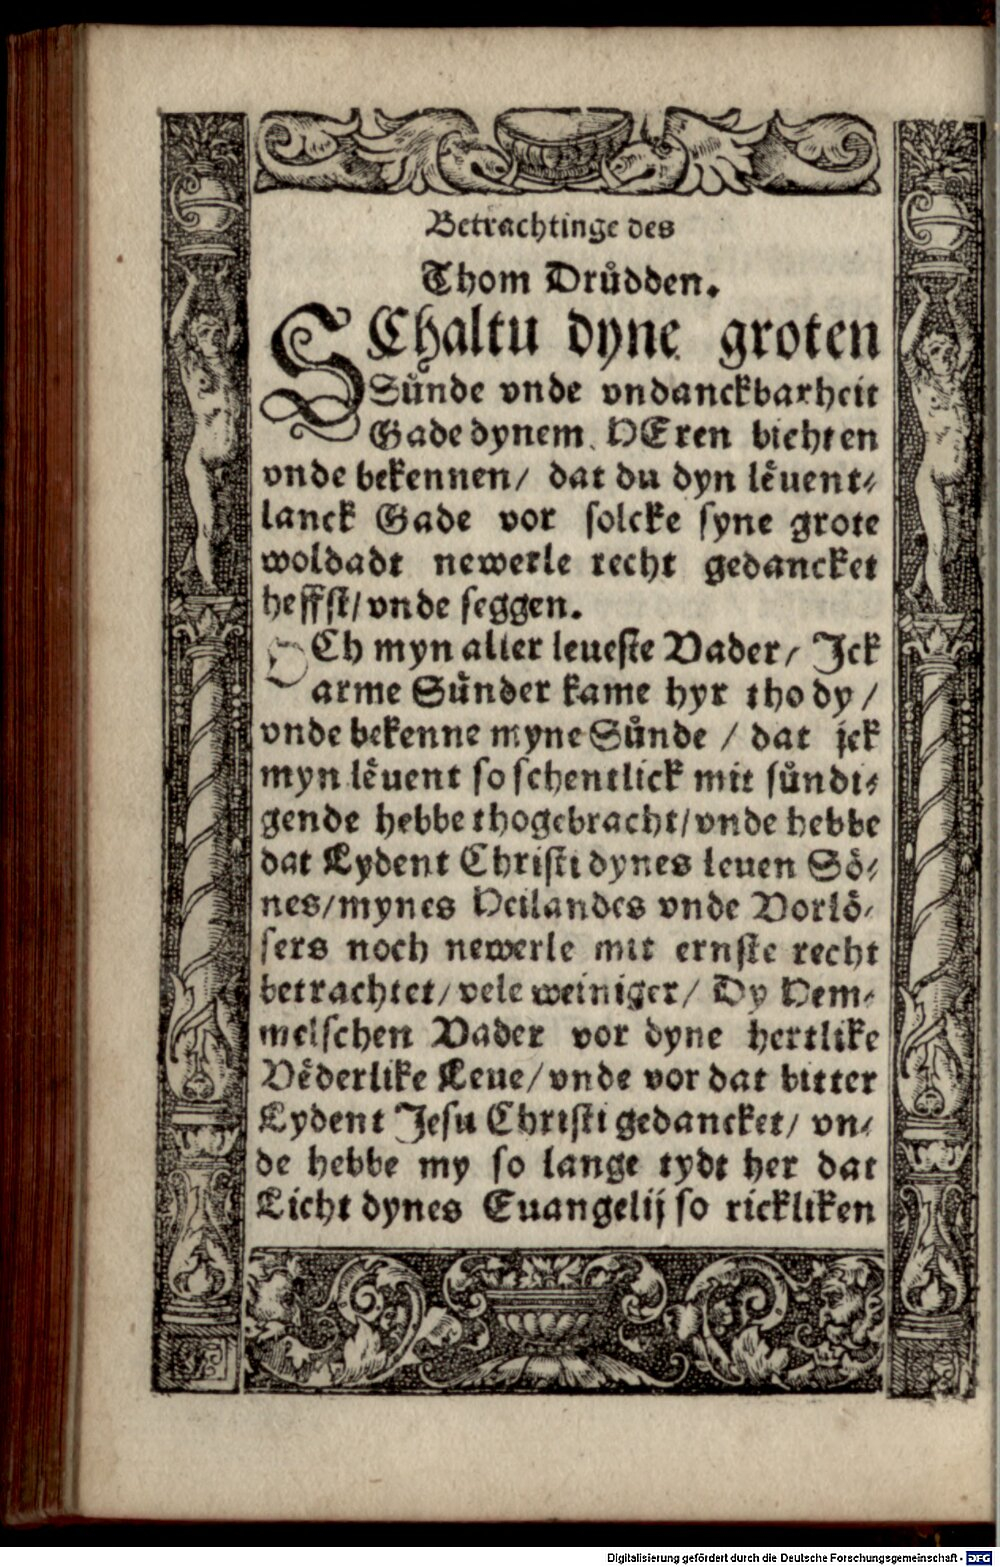 Betrachtinge des
Thom Drůdden.
SChaltu dyne groten
Sůnde vnde vndanckbarheit
Gade dynem HEren bichten
vnde bekennen/ dat du dyn lěuent⸗
lanck Gade vor solcke syne grote
woldadt newerle recht gedancket
heffst/ vnde seggen.
OCh myn aller leueste Vader/ Jck
arme Sůnder kame hyr tho dy/
vnde bekenne myne Sůnde / dat jck
myn lěuent so schentlick mit sůndi⸗
gende hebbe thogebracht/ vnde hebbe
dat Lydent Christi dynes leuen Sö⸗
nes/ mynes Heilandes vnde Vorlö⸗
sers noch newerle mit ernste recht
betrachtet/ vele weiniger/ Dy Hem⸗
melschen Vader vor dyne hertlike
Věderlike Leue/ vnde vor dat bitter
Lydent Jesu Christi gedancket/ vn⸗
de hebbe my so lange tydt her dat
Licht dynes Euangelij so rickliken
Digitalisierung gefördert durch die Deutsche Forschungsgemeinschaft - DFG